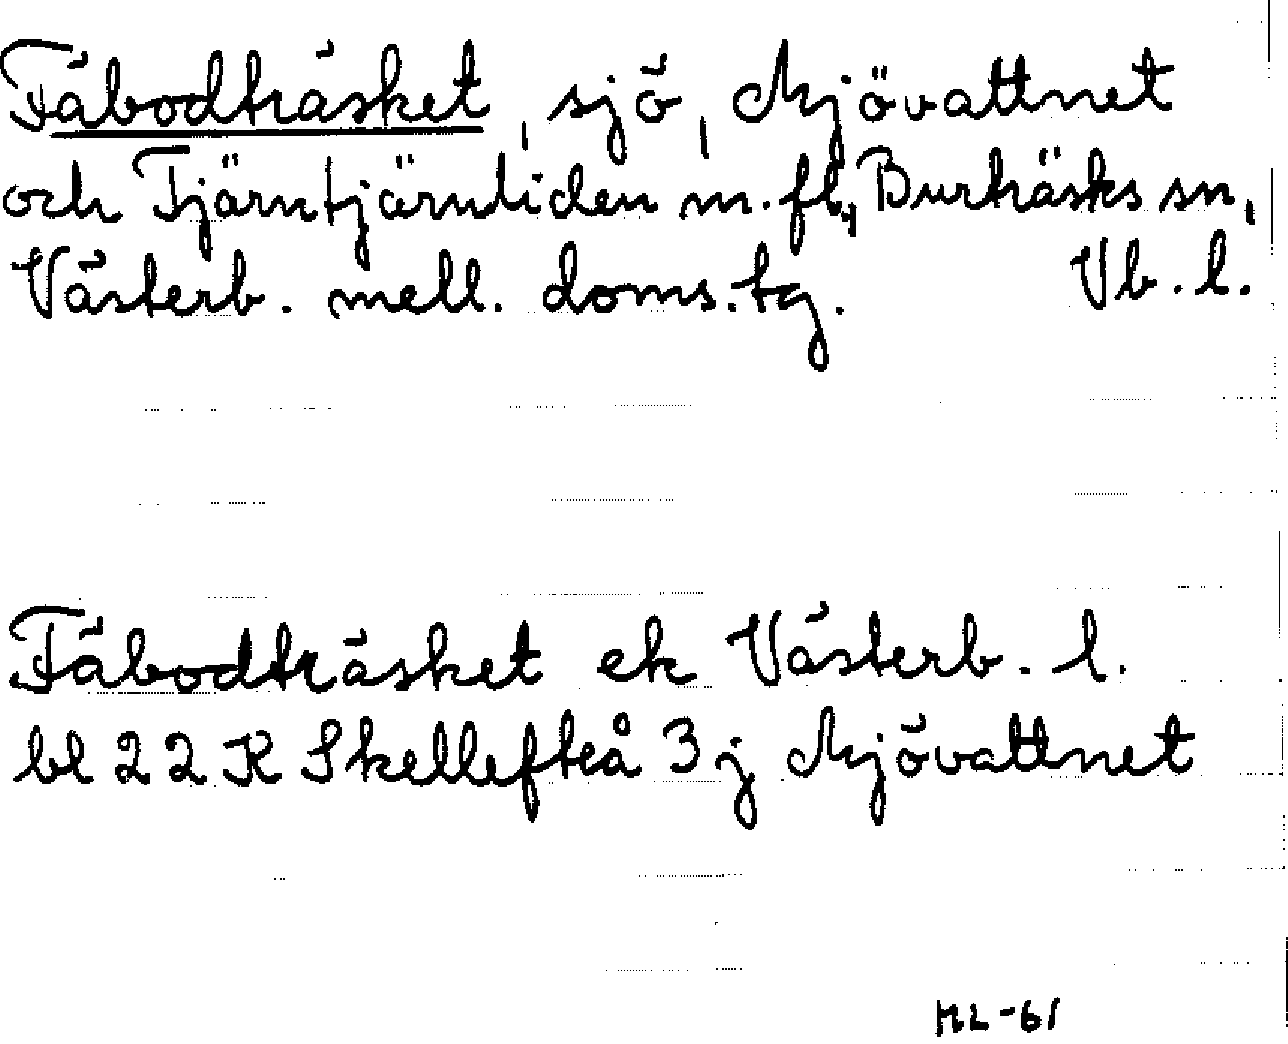 Fäbodträsket, sjö, Mjövattnet
och Tjärntjärnliden m.fl., Burträsks sn,
Västerb. mell. doms.tg. Vb. l.
Fäbodträsket ek Västerb. l.
bl 22 K Skellefteå 3 j Mjövattnet
ML-61